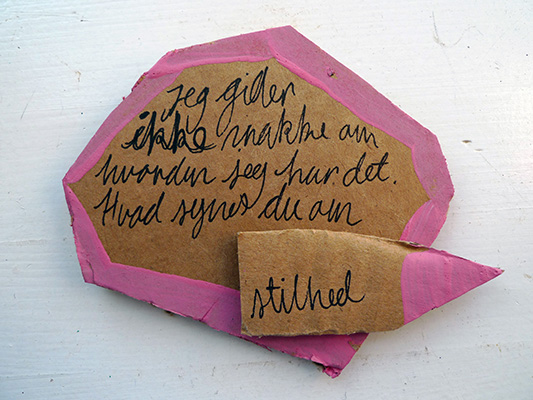 jeg gider
ikke snakke om
hvordan jeg har det.
Hvad synes du om
stilhed